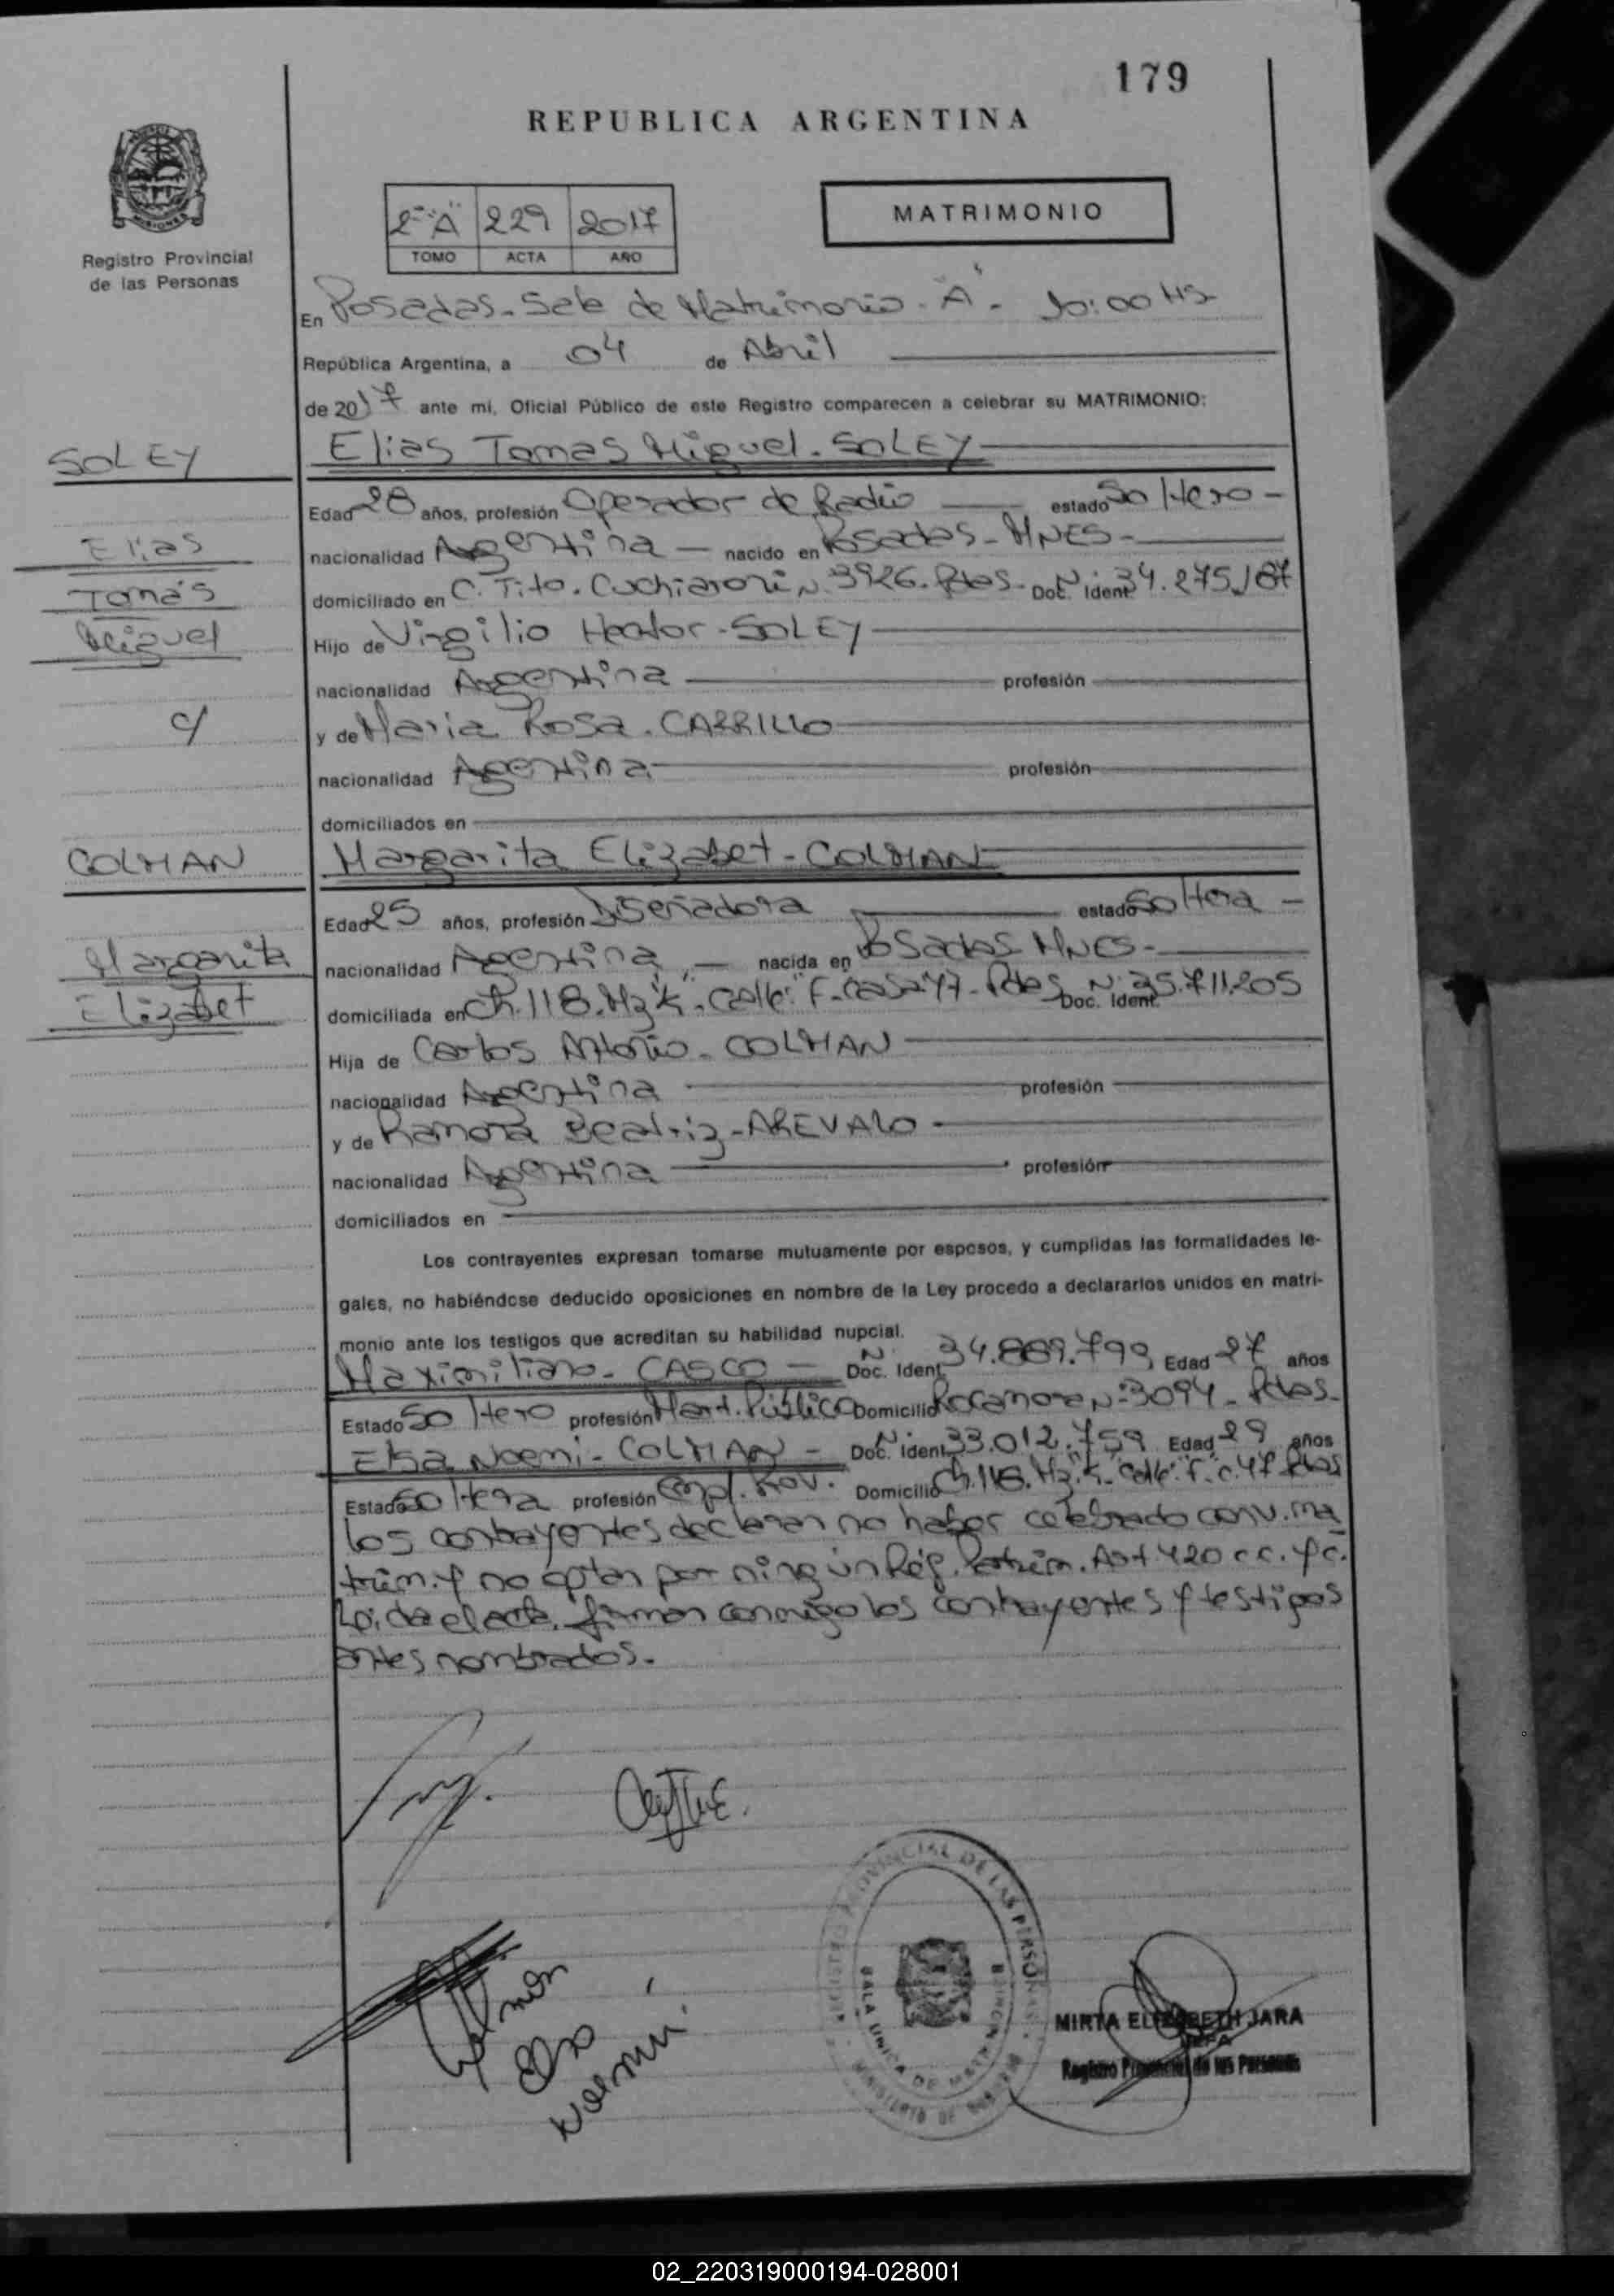 179
REPUBLICA ARGENTINA
Registro Provincial
de las Personas
2º "A" 229 2017
TOMO ACTA AÑO
MATRIMONIO
En Posadas - Sala de Matrimonio - "A" - 10:00 HS
República Argentina, a 04 de Abril
de 2017 ante mí, Oficial Público de este Registro comparecen a celebrar su MATRIMONIO:
SOLEY
Elias Tomas Miguel - SOLEY
Edad 28 años, profesión Operador de Radio estado Soltero -
Elias
nacionalidad Argentina - nacido en Posadas - MNES -
Tomás
domiciliado en C. Tito. Cuchiaroni N: 3926. Pdas - Doc. Ident. N: 34.275.187
Miguel
Hijo de Virgilio Hector - SOLEY
nacionalidad Argentina profesión
c/
y de Maria Rosa. CARRILLO
nacionalidad Argentina profesión
domiciliados en
COLMAN
Margarita Elizabet - COLMAN
Edad 25 años, profesión Diseñadora estado Soltera -
Margarita
nacionalidad Argentina - nacida en Posadas MNES -
Elizabet
domiciliada en Ch. 118. Mz "K". Calle: "F". casa 47 - Pdas Doc. Ident. N: 35.711.205
Hija de Carlos Antonio - COLMAN
nacionalidad Argentina profesión
y de Ramona Beatriz - AREVALO -
nacionalidad Argentina profesión
domiciliados en
Los contrayentes expresan tomarse mutuamente por esposos, y cumplidas las formalidades le-
gales, no habiéndose deducido oposiciones en nombre de la Ley procedo a declararlos unidos en matri-
monio ante los testigos que acreditan su habilidad nupcial.
Maximiliano - CASCO - Doc. Ident. N: 34.889.799 Edad 27 años
Estado Soltero profesión Mart. Público Domicilio Rocamora N: 3094 - Pdas -
Elsa Noemi - COLMAN - Doc. Ident. N: 33.012.759 Edad 29 años
Estado Soltera profesión Empl. Domicilio Ch. 118. Mz "K" Calle: "F". c. 47 Pdas
los contrayentes declaran no haber celebrado conv. ma
trim. y no optan por ningún Rég. Patrim. Art 420 c.c. y c.
Leída el acta, firman conmigo los contrayentes y testigos
antes nombrados.
Colman
Elsa
Noemi
REGISTRO PROVINCIAL DE LAS PERSONAS
SALA UNICA DE
MINISTERIO DE
MIRTA ELIZABETH JARA
JEFA
Registro Provincial de las Personas
02_220319000194-028001